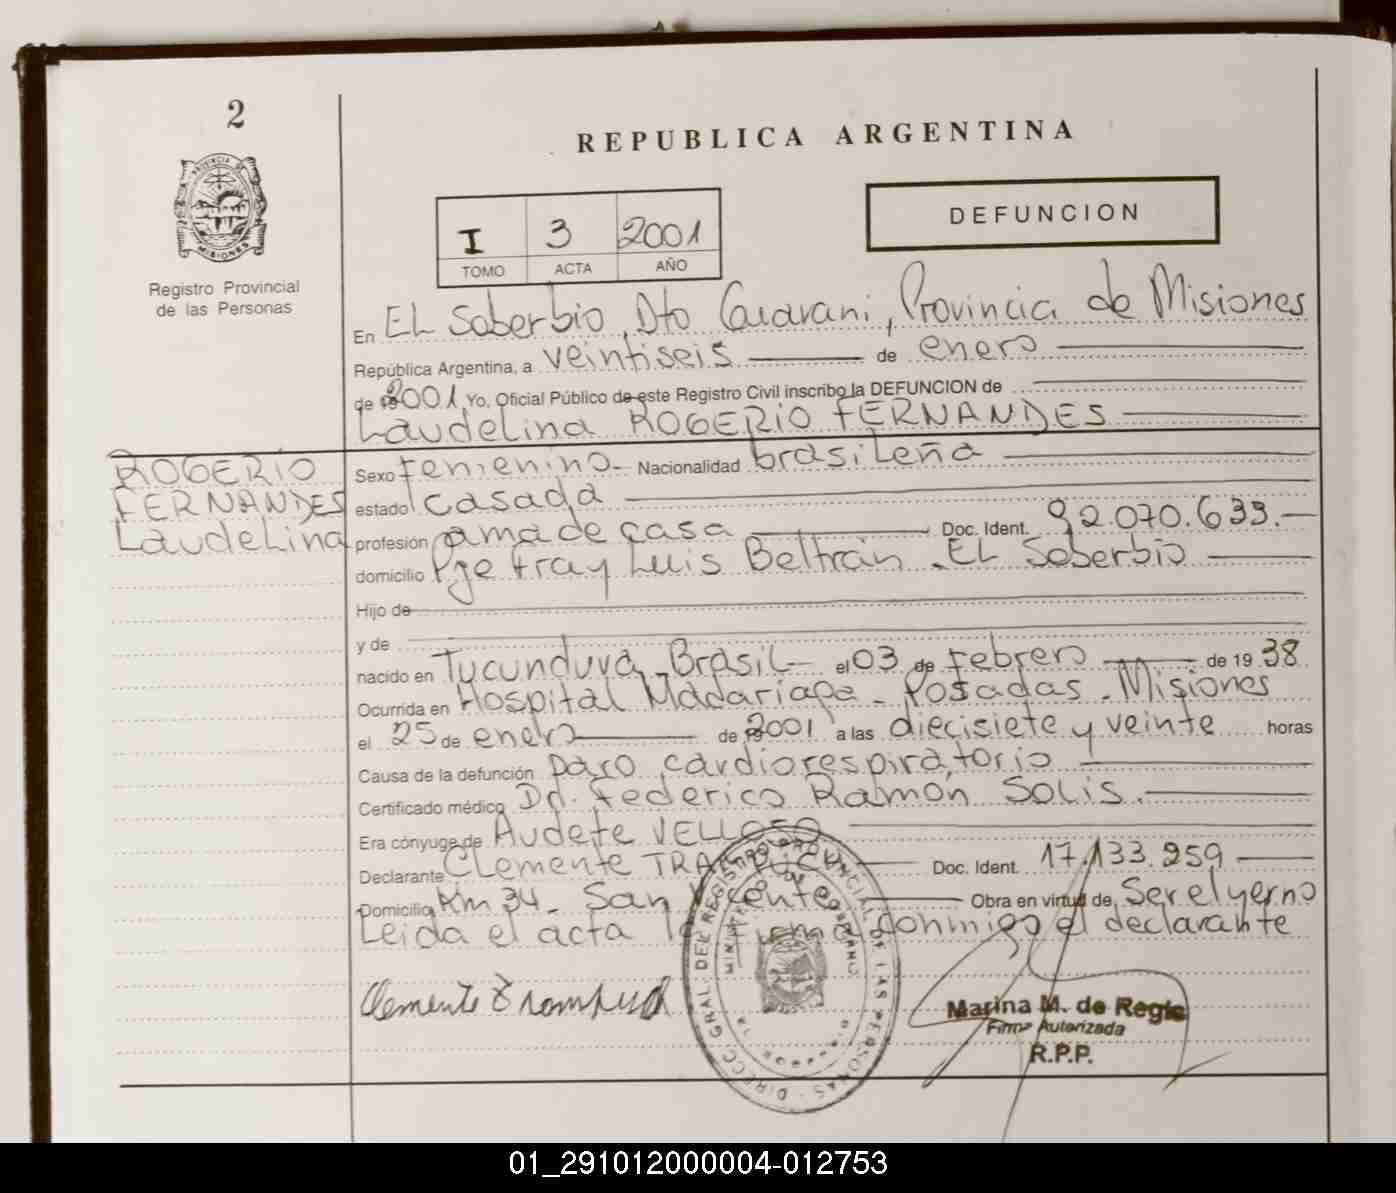 2
REPUBLICA ARGENTINA
PROVINCIA DE
MISIONES
I 3 2001
TOMO ACTA AÑO
DEFUNCION
Registro Provincial
de las Personas
En EL Soberbio, Dto Guarani, Provincia de Misiones
República Argentina, a veintiseis de enero
de 2001 Yo, Oficial Público de este Registro Civil inscribo la DEFUNCION de
Laudelina ROGERIO FERNANDES
ROGERIO
FERNANDES
Laudelina
Sexo femenino - Nacionalidad brasileña
estado casada
profesión ama de casa Doc. Ident. 92.070.633.-
domicilio Pje fray Luis Beltrán . EL Soberbio
Hijo de
y de
nacido en Tucunduva - Brasil - el 03 de febrero de 19 38
Ocurrida en Hospital Madariaga - Posadas - Misiones
el 25 de enero de 2001 a las diecisiete y veinte horas
Causa de la defunción paro cardiorespiratorio
Certificado médico Dr. Federico Ramón Solis.
Era cónyuge de Audete VELLOSO
Declarante Clemente Doc. Ident. 17.133.259
Domicilio Km 34 - San Vicente Obra en virtud de Ser el yerno
Leida el acta la firma conmigo el declarante
Clemente
DIRECC. GRAL. DEL REGISTRO PROVINCIAL DE LAS PERSONAS
MINISTERIO DE GOBIERNO
Marina M. de Regis
Firma Autorizada
R.P.P.
01_291012000004-012753